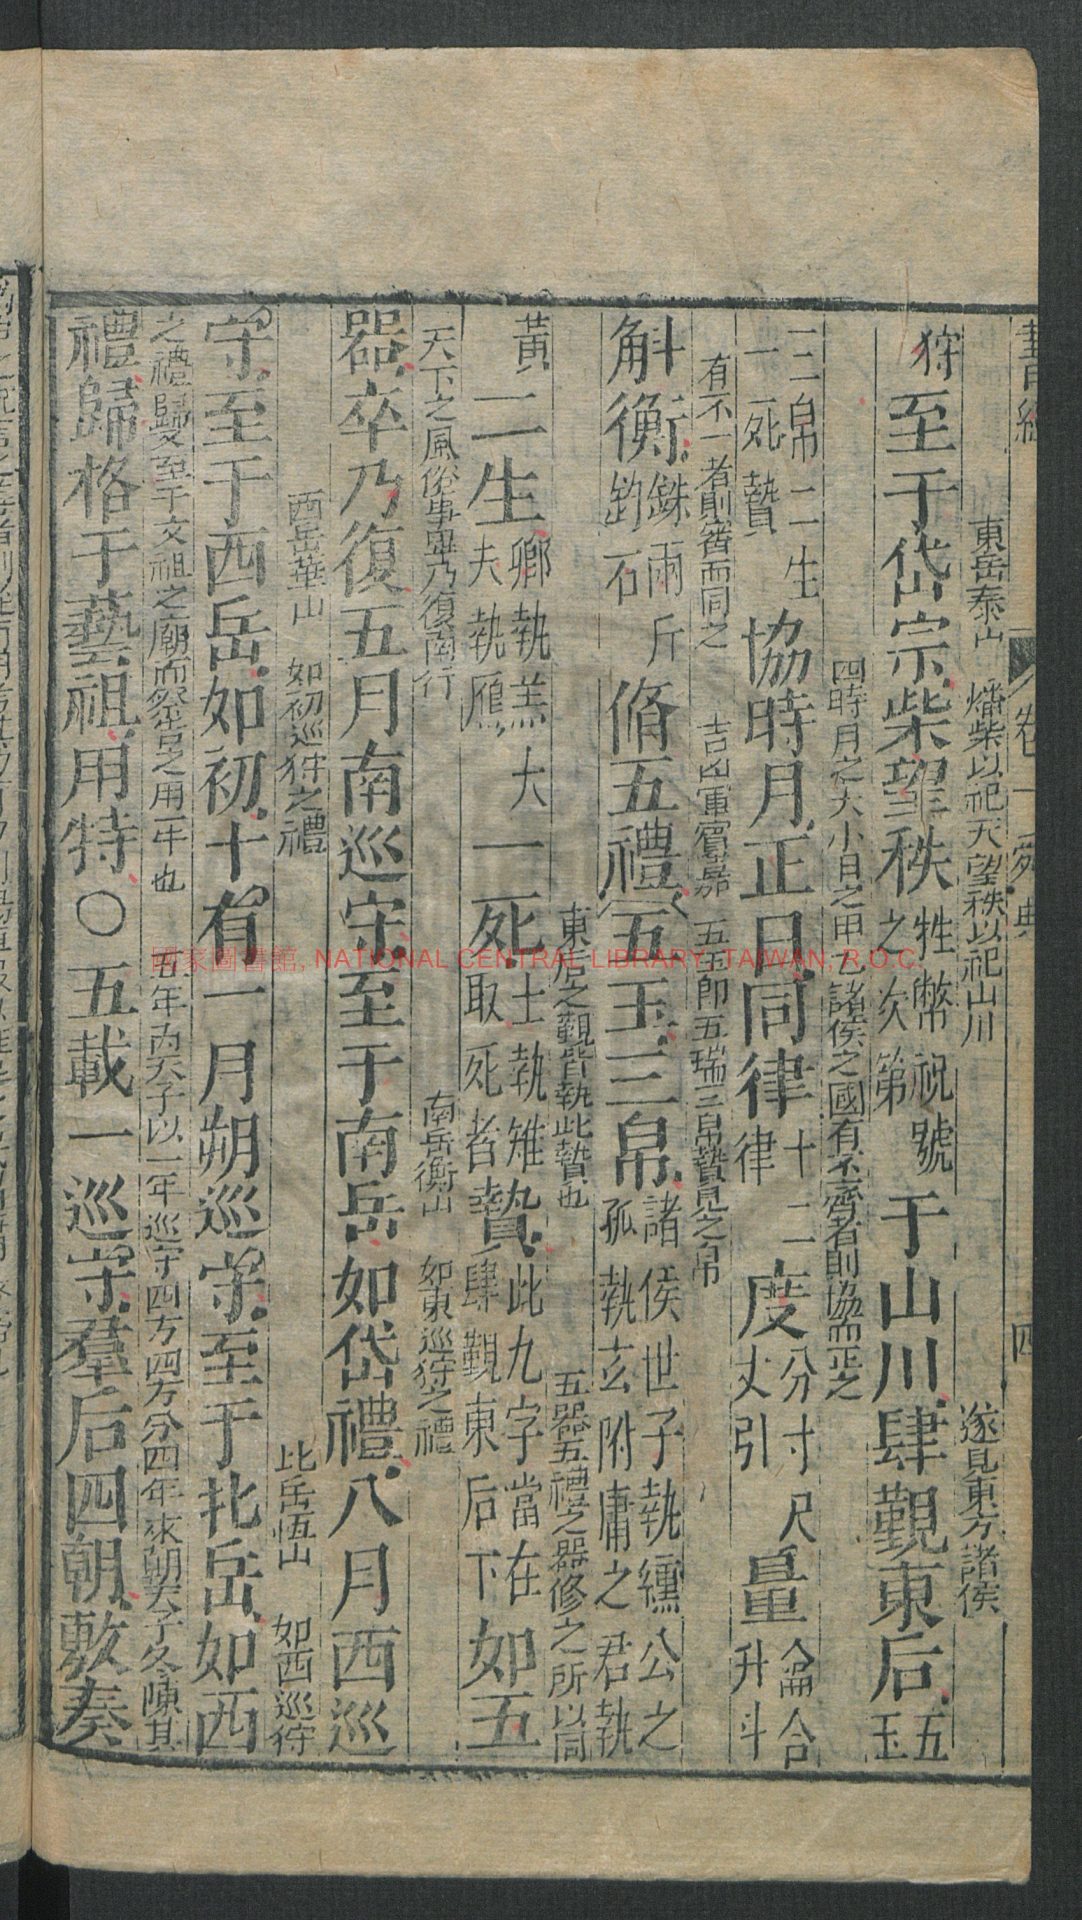 書經 卷一 舜典 四
東岳泰山 燔柴以祀天望秩以祀山川 遂見東方諸侯
狩至于岱宗柴望秩牲幣祝號之次第于山川肆覲東后五玉
四時月之大小日之甲乙諸侯之國有不齊者則協而正之
三帛二生一死贄協時月正日同律十二律度分寸尺丈引量龠合升斗
有不一者則審而同之 吉凶軍賓嘉 五玉即五瑞三帛贄見之帛
斛衡銖兩斤鈞石脩五禮五玉三帛諸侯世子執纁公之孤執玄附庸之君執
東后之覲皆執此贄也 五器五禮之器修之所以同
黃二生卿執羔大夫執鴈一死士執雉取死者贄此九字當在肆覲東后下如五
天下之風俗事畢乃復南行 南岳衡山 如東巡狩之禮
器卒乃復五月南巡守至于南岳如岱禮八月西巡
西岳華山 如初巡狩之禮 北岳恆山 如西巡狩
守至于西岳如初十有一月朔巡守至于北岳如西
之禮歸又至于文祖之廟而祭告之用一牛也 五年內天子以一年巡守四方四方分四年來朝天子久陳其
禮歸格于藝祖用特○五載一巡守羣后四朝敷奏
國家圖書館, NATIONAL CENTRAL LIBRARY, TAIWAN, R.O.C.